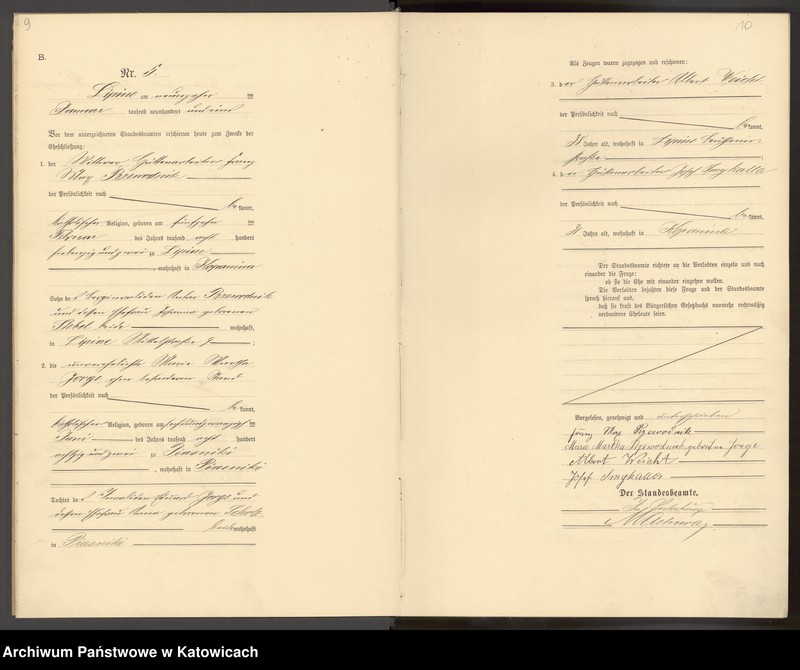 9
B.
Nr. 5.
Lipine am neunzehnten
Januar tausend neunhundert und eins
Vor dem unterzeichneten Standesbeamten erschienen heute zum Zwecke der
Eheschließung:
1. der Witwer Hüttenarbeiter Franz
Max Przewodnik
der Persönlichkeit nach
be kannt,
katholischer Religion, geboren am fünfzehnten
Februar des Jahres tausend acht hundert
siebenzig und zwei zu Lipine
, wohnhaft in Kopanina
Sohn des Berginvaliden Anton Przewodnik
und dessen Ehefrau Johanna geborenen
beide wohnhaft,
in Lipine Mittelstraße ;
2. die unverehelichte Maria Martha
Jorge ohne besonderen Stand
der Persönlichkeit nach
be kannt,
katholischer Religion, geboren am sechsundzwanzigsten
Juni des Jahres tausend acht hundert
achtzig und zwei zu Piasniki
, wohnhaft in Piasniki
Tochter des Invaliden Eduard Jorge und
dessen Ehefrau Anna geborenen
wohnhaft
in Piasniki
10
Als Zeugen waren zugezogen und erschienen:
3. der Hüttenarbeiter Albert Weicht
der Persönlichkeit nach
be kannt,
Jahre alt, wohnhaft in Lipine
straße ;
4. der Hüttenarbeiter Josef
der Persönlichkeit nach
be kannt,
Jahre alt, wohnhaft in Kopanina
Der Standesbeamte richtete an die Verlobten einzeln und nach
einander die Frage:
ob sie die Ehe mit einander eingehen wollen.
Die Verlobten bejahten diese Frage und der Standesbeamte
sprach hierauf aus,
daß sie kraft des Bürgerlichen Gesetzbuchs nunmehr rechtmäßig
verbundene Eheleute seien.
Vorgelesen, genehmigt und unterschrieben
Franz Max Przewodnik
Maria Martha Przewodnik geborene Jorge
Albert Weicht
Josef
Der Standesbeamte.
In Vertretung
Archiwum Państwowe w Katowicach